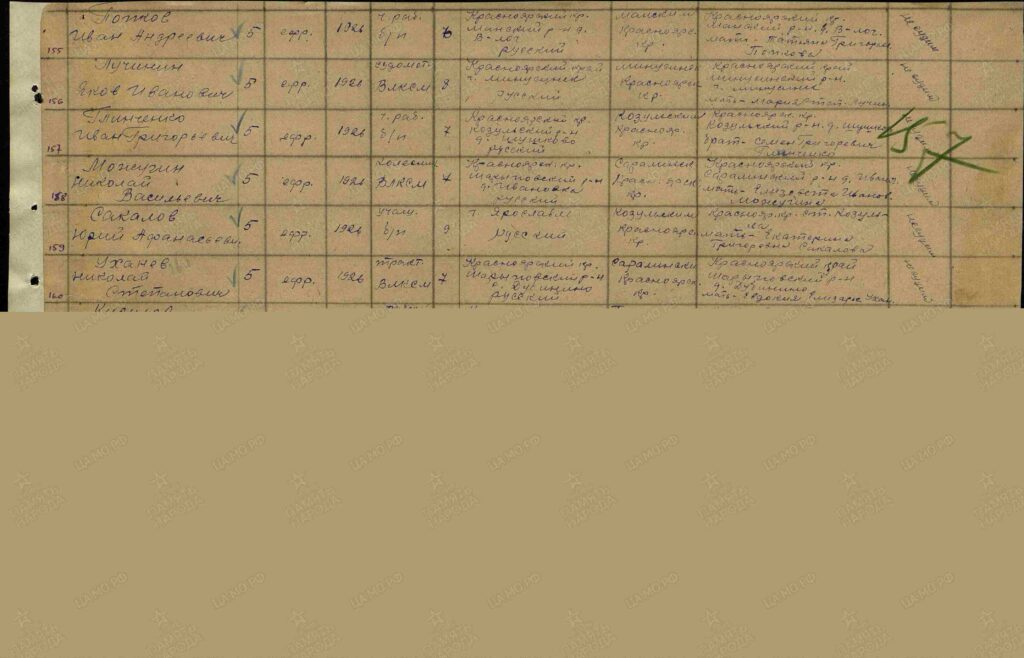 155 Попков Иван Андреевич 5 ефр. 1926 ч. раб. б/п 6 Красноярский кр. Манский р-н д. В-лог. русский Манский Красноярск. кр. Красноярский кр. Манский р-н д. В-лог. мать - Татьяна Григор. Попкова несудим
156 Лучинин Яков Иванович 5 ефр. 1926 ВЛКСМ 8 Красноярский край г. Минусинск русский Минусинск Красноярск кр. Красноярский край Минусинский р-н. г. Минусинск мать - Мария несудим
157 Глинченко Иван Григорьевич 5 ефр. 1926 ч. раб. б/п 7 Красноярский кр. Козульский р-н д. Шушково русский Козульский Краснояр. кр. Красноярск. кр. Козульский р-н. д. Шушково брат - Семен Григоревич Глинченко
157
158 Можугин Николай Васильевич 5 ефр. 1926 ВЛКСМ 7 Красноярск. кр. Шарыповский р-н д. Ивановка русский Саралинск Краснояск кр. Красноярский кр. Саралинский р-н д. Иванч. мать - Елизовета Иванов. Можугина
159 Сакалов Юрий Афанасьеви 5 ефр. 1926 учащ. б/п 9 г. Ярославль русский Козульским Красноярск кр. Краснояр. кр. ст. Козулька мать - Екатерина Григоревна Сакалова несудим
160 Уханев Николай Степанович 5 ефр. 1926 тракт. ВЛКСМ 7 Красноярский кр. Шарыповский р-н с. Дубинино русский Саралински Красноярск. кр. Красноярский край Шарыповский р-н д. Дубинино мать - Евдокия Елизаров. Ухан. несудим
ПАМЯТЬ НАРОДА
ЦАМО.РФ